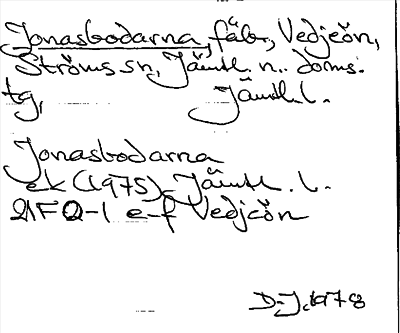 Jonasbodarna, fäb., Vedjeön,
Ströms sn, Jämtl. n. doms:
tg, Jämtl. l.
Jonasbodarna
ek (1975) Jämtl. l.
21FQ-1 e-f Vedjeön
D-J. 1978